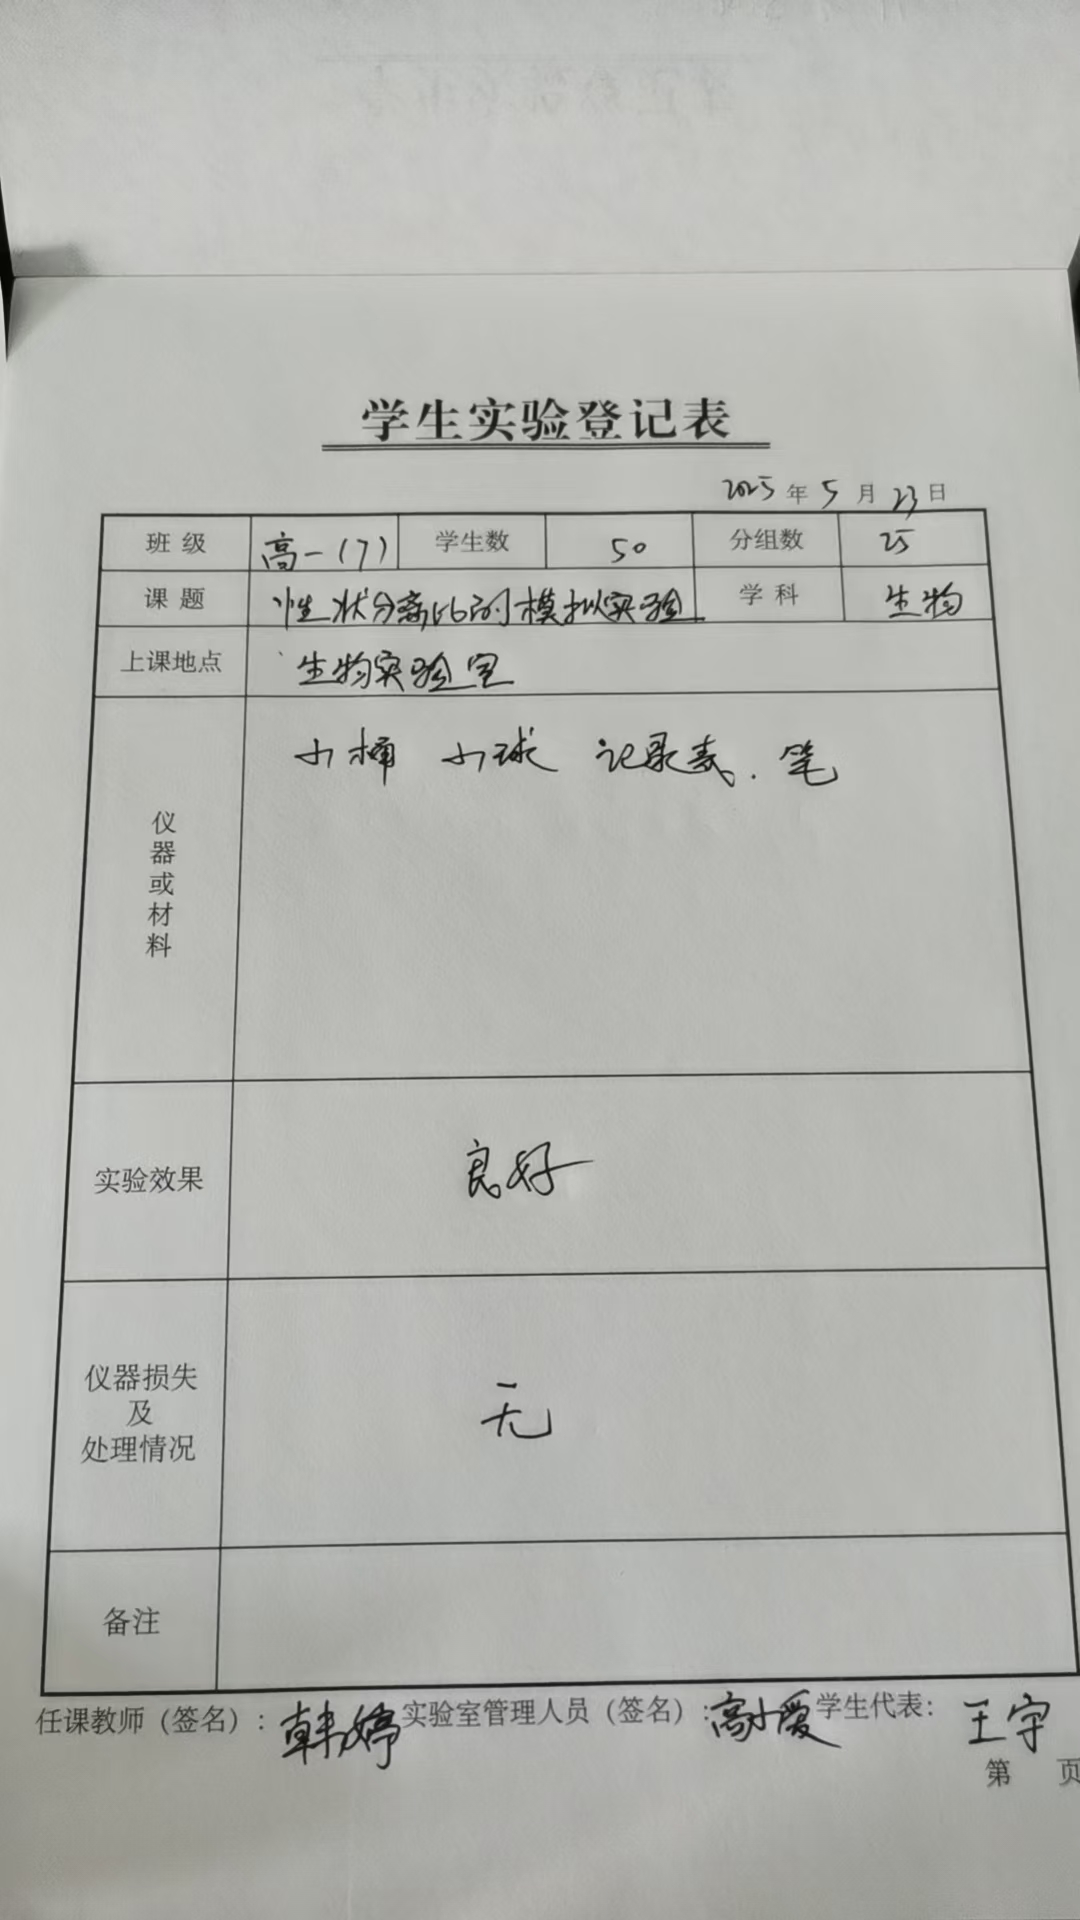 学生实验登记表
2025年5月23日
班级 高一(7) 学生数 50 分组数 25
课题 性状分离比的模拟实验 学科 生物
上课地点 生物实验室
仪器或材料 小桶 小球 记录表.笔
实验效果 良好
仪器损失
及
处理情况 无
备注
任课教师（签名）: 韩婷 实验室管理人员（签名）: 高小爱 学生代表: 王宇
第 页